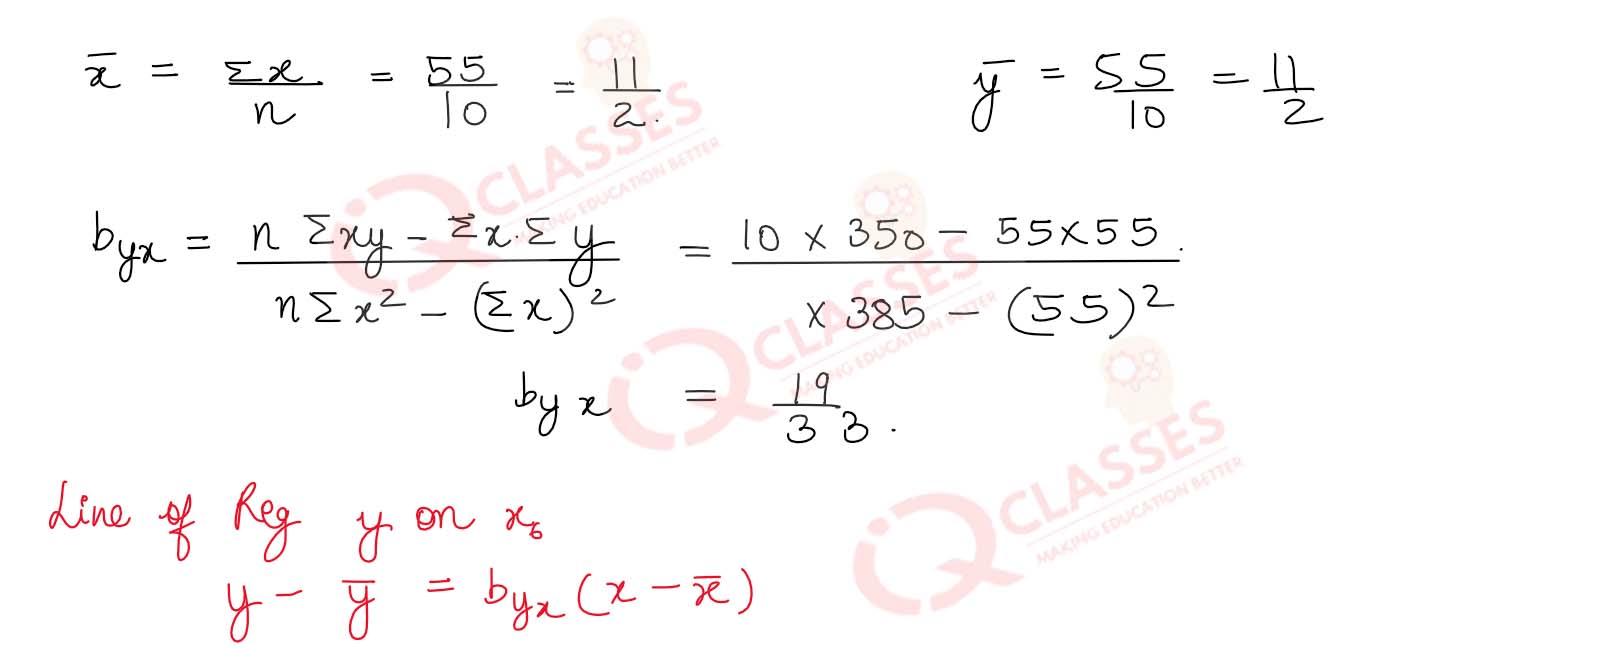 x̄ = Σx/n = 55/10 = 11/2. ȳ = 55/10 = 11/2
byx = (n Σxy - Σx.Σy)/(nΣx² - (Σx)²) = (10 x 350 - 55x55.)/(x 385 - (55)²)
byx = 19/33.
Line of Reg y on x
y - ȳ = byx (x - x̄)
iQ CLASSES
MAKING EDUCATION BETTER
iQ CLASSES
MAKING EDUCATION BETTER
iQ CLASSES
MAKING EDUCATION BETTER